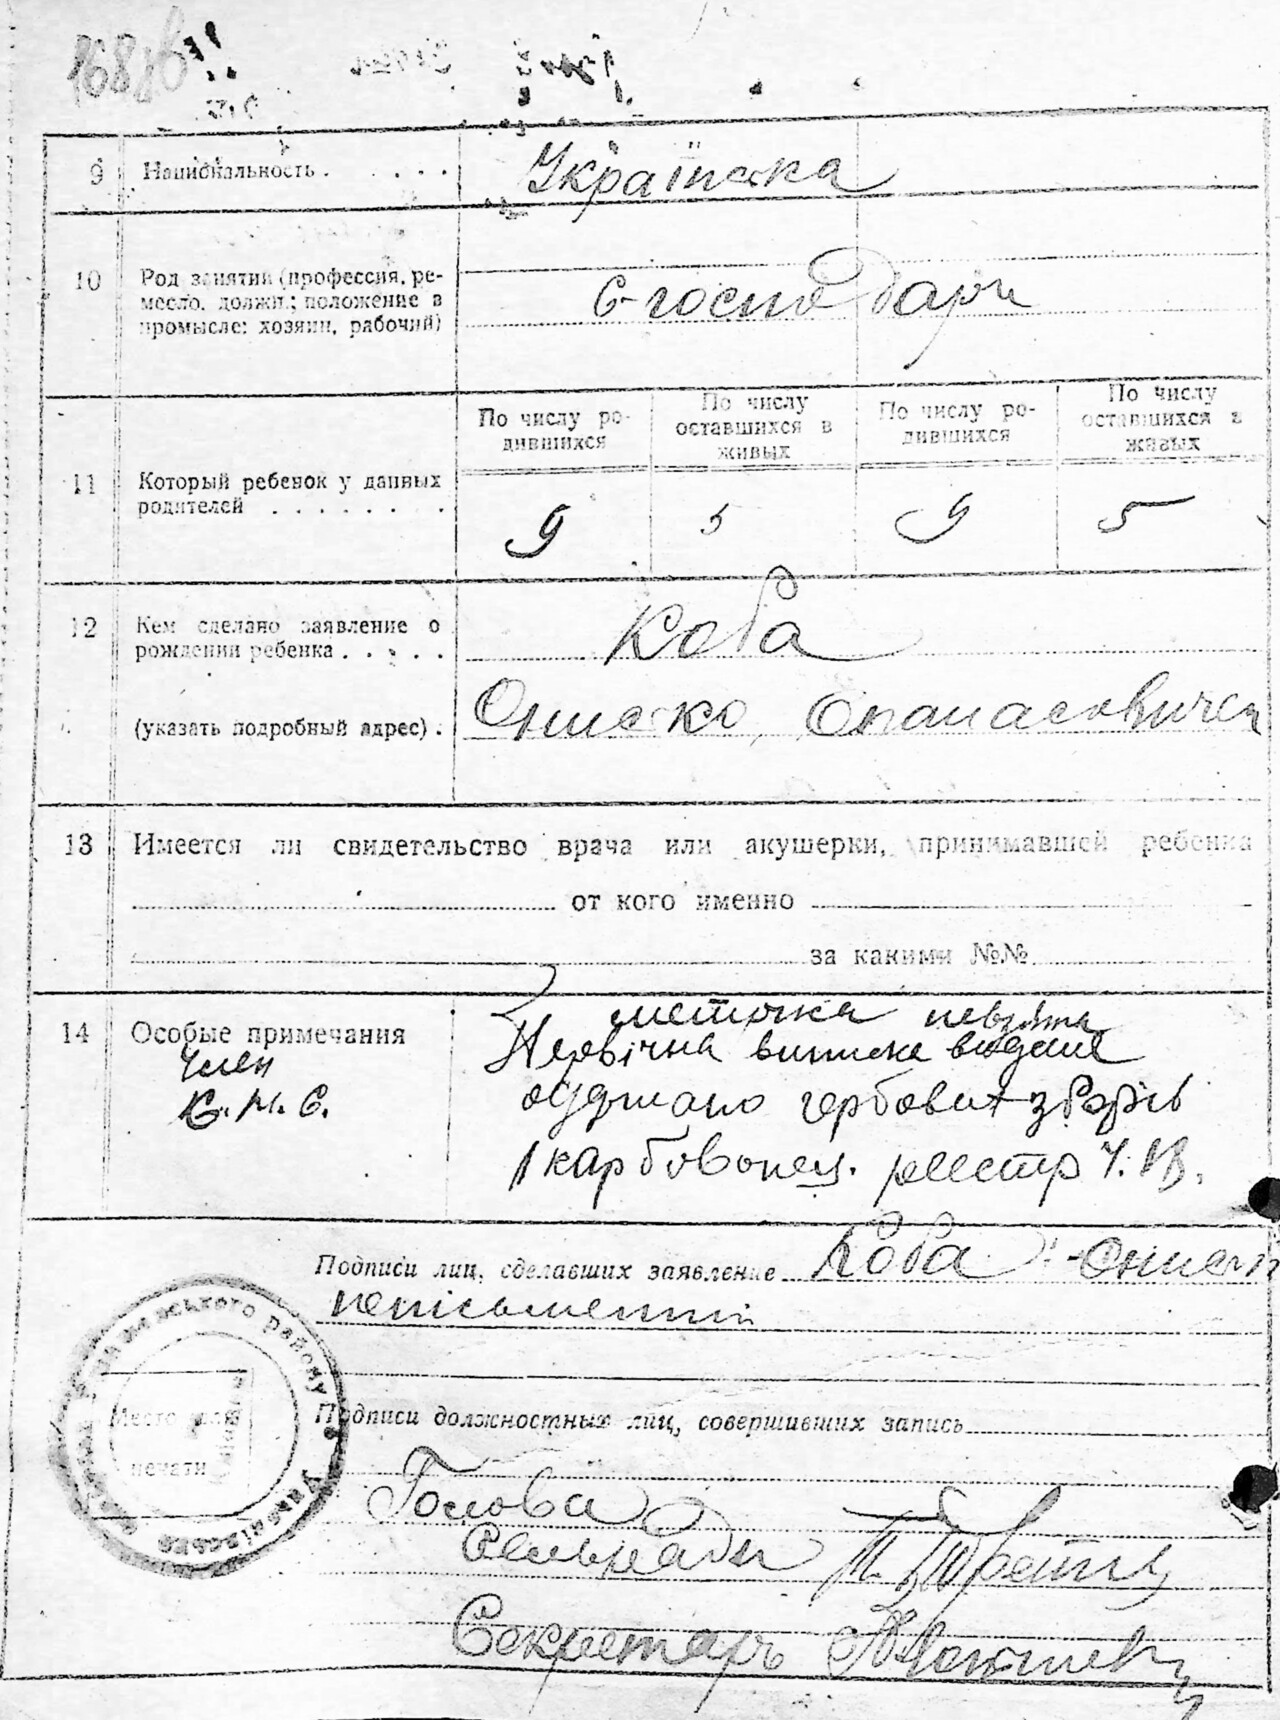 9 Национальность . . . . . Українська
10 Род занятий (профессия, ре-
месло, должн.; положение в
промысле: хозяин, рабочий)
С-господарі
По числу ро-
дившихся
По числу
оставшихся в
живых
По числу ро-
дившихся
По числу
оставшихся в
живых
11 Который ребенок у данных
родителей . . . . . . .
9 5 9 5
12 Кем сделано заявление о
рождении ребенка . . . . .
Коба
(указать подробный адрес) .
Ониско, Опанасович
13 Имеется ли свидетельство врача или акушерки, принимавшей ребенка
от кого именно
за какими №№
14 Особые примечания
Член
К.Н.С.
метрика
Первічна виписка видана
одержано гербових зборів
1 карбованец. реестр Ч. 13.
Подписи лиц, сделавших заявление Коба
неписьменний
Место для
печати
району
Подписи должностных лиц, совершивших запись
Голова
Сельради
Секретарь